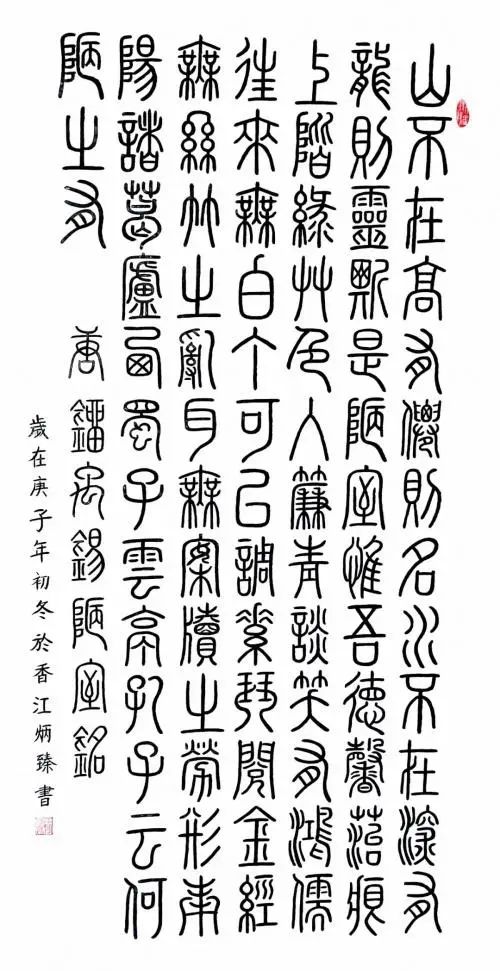 山不在高有僊則名水不在深有
龍則靈斯是陋室惟吾德馨苔痕
上階綠艸色入簾青談笑有鴻儒
往來無白丁可以調素琴閱金經
無絲竹之亂耳無案牘之勞形南
陽諸葛廬西蜀子雲亭孔子云何
陋之有
唐鎦禹錫陋室銘
歲在庚子年初冬於香江炳臻書